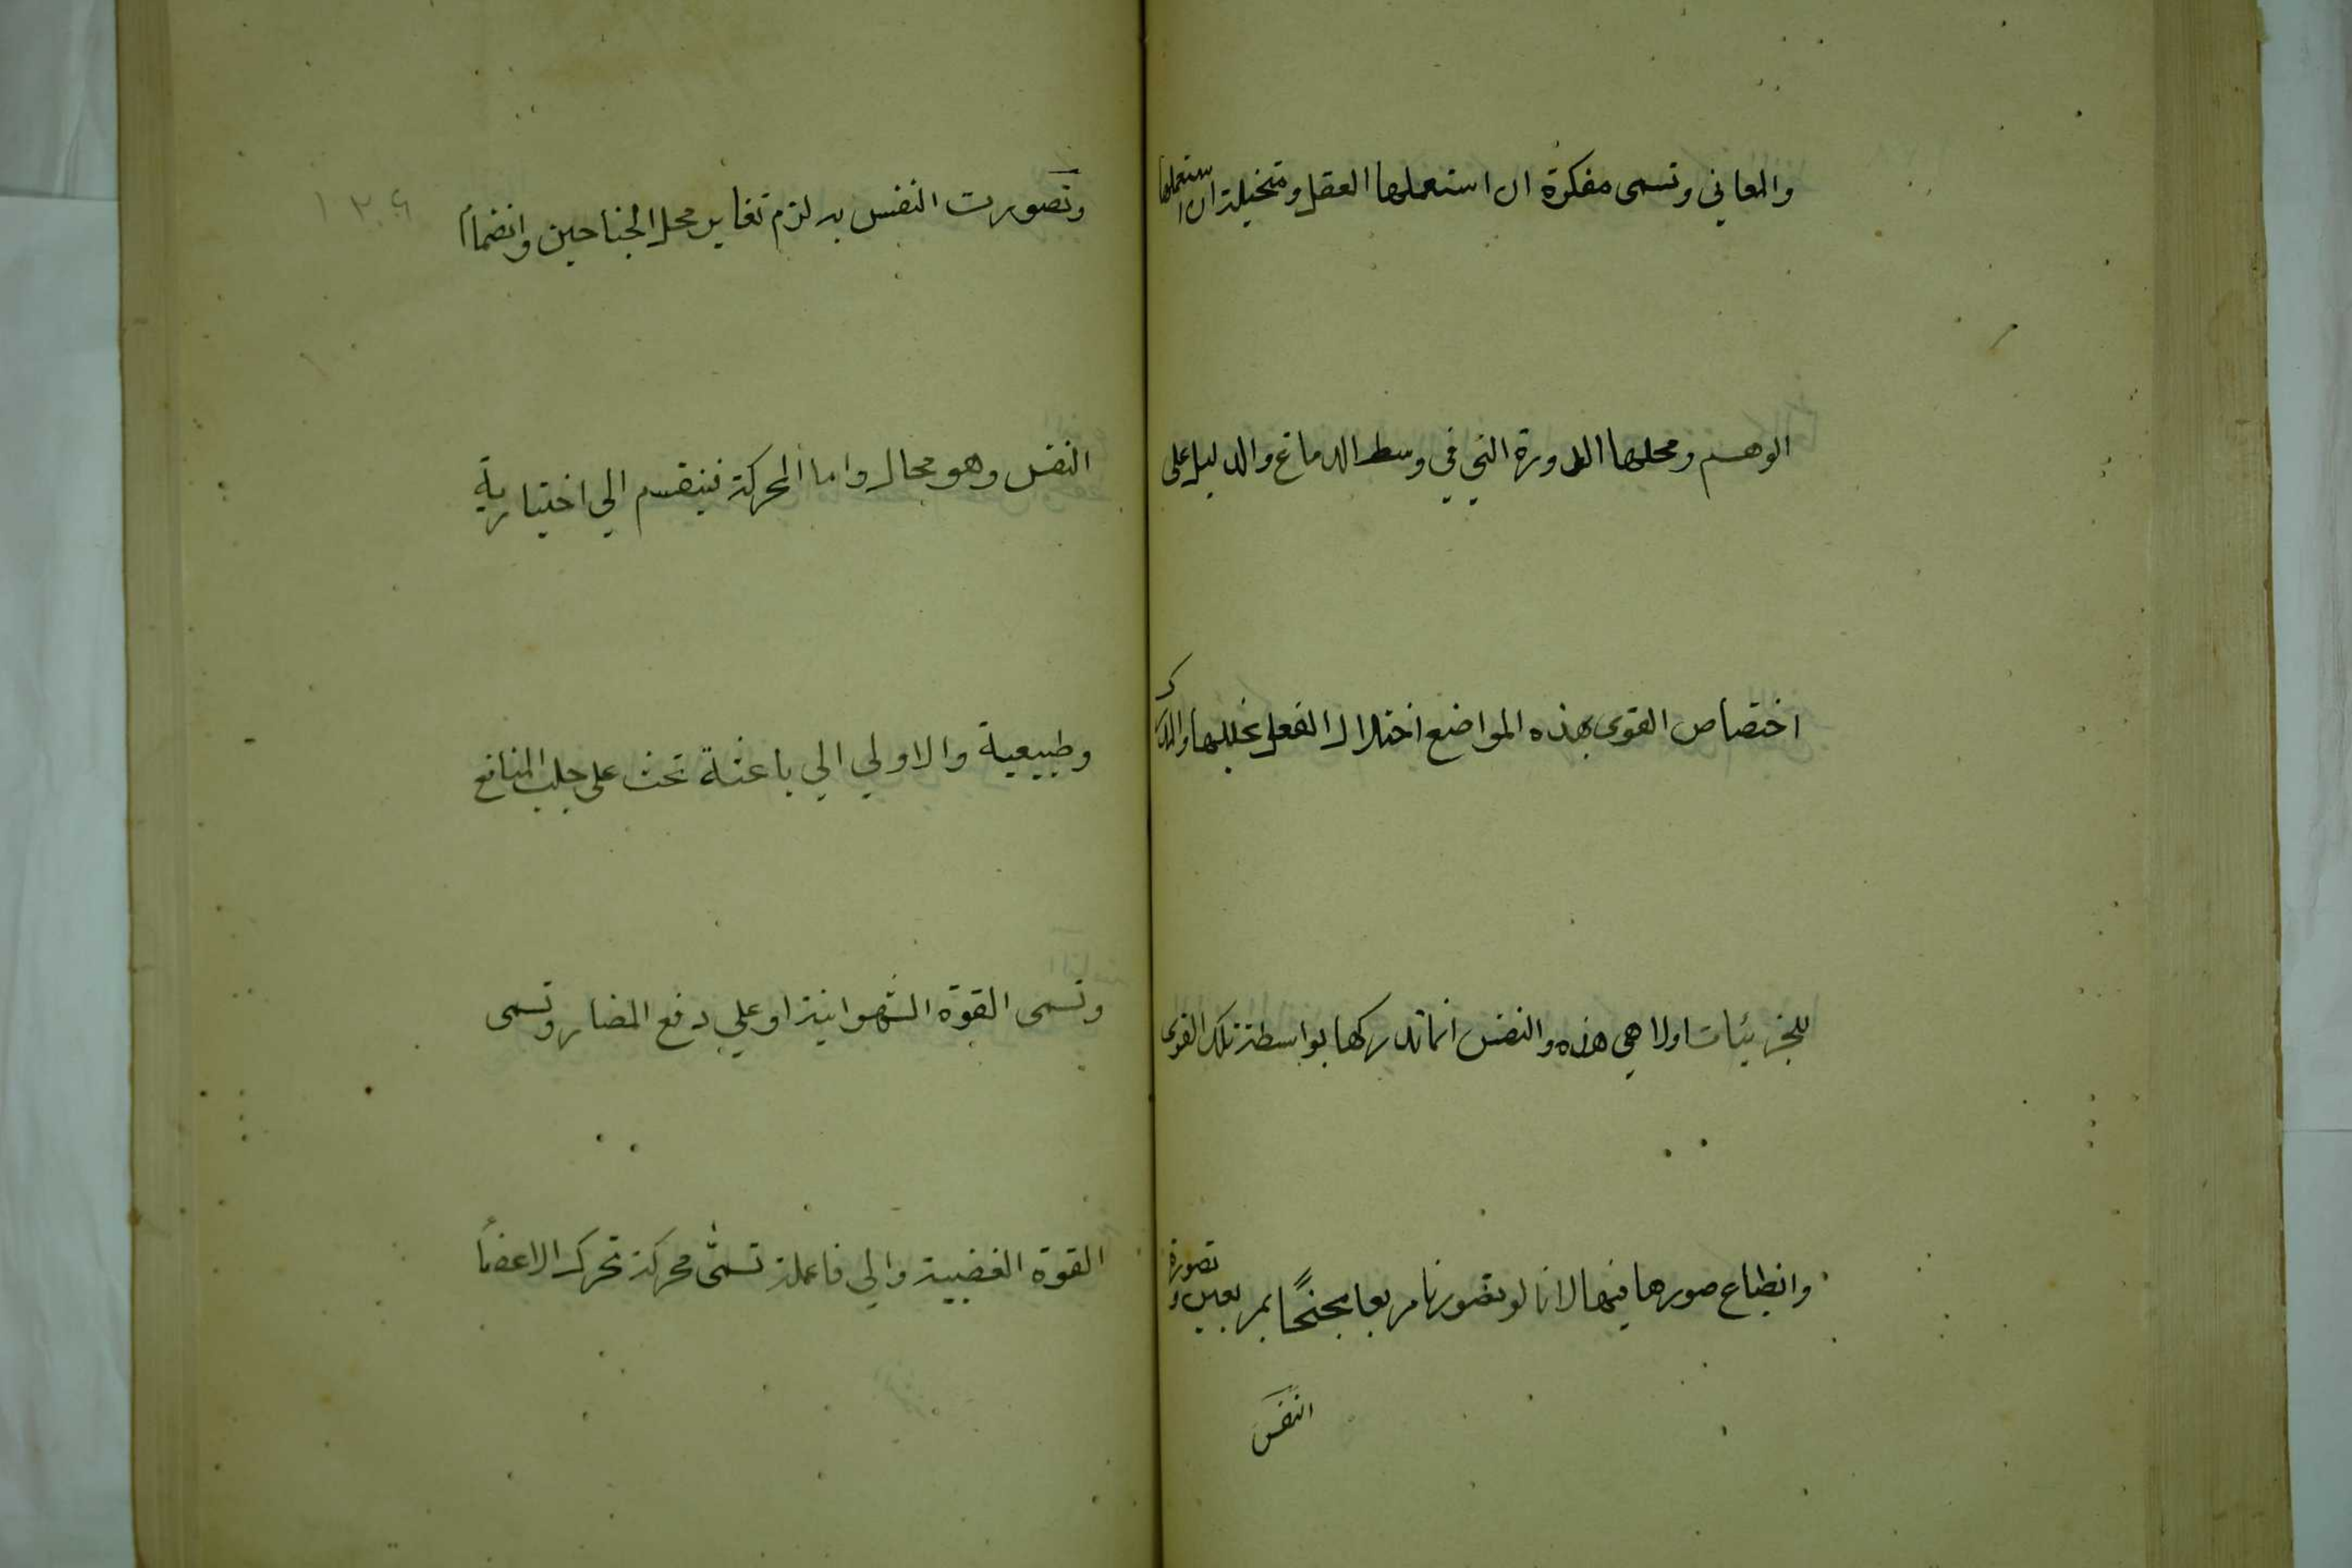 والمعاني وتسمى مفكرة ان استعملها العقل ومتخيلة ان استعملها
الوهم ومحلها الدودة التي في وسط الدماغ والدليل على
اختصاص القوى بهذه المواضع اختلال الفعل بخللها والمدرك
للجزئيات اولا هي هذه والنفس انما تدركها بواسطة تلك القوى
وانطباع صورها فيها لانا لو تصورنا مربعا مجنحًا بمربعين و تصورة
النفس
١٣٩
وتصورت النفس به لزم تغاير محل الجناحين وانضمام
النفس وهو محال واما المحركة فينقسم الي اختيارية
وطبيعية والاولي الي باعثة تحث على جلب المنافع
وتسمى القوة الشهوانية او علي دفع المضار وتسمى
القوة الغضبية والي فاعلة تسمّى محركة تحرك الاعضا